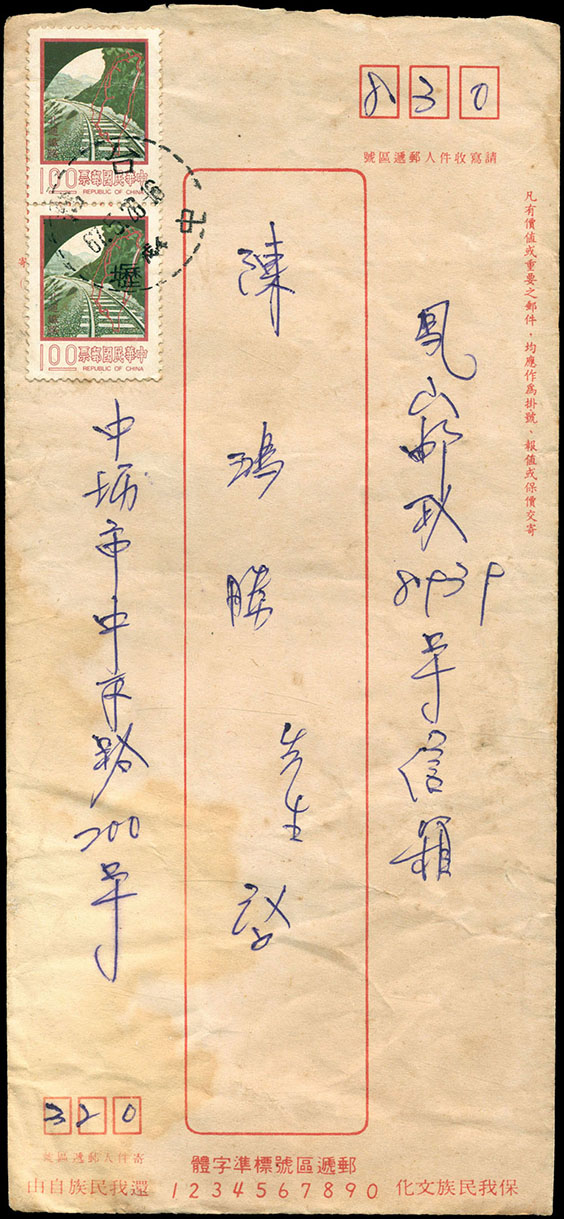 830
請寫收件人郵遞區號
凡有價值或重要之郵件，均應作為掛號、報值或保價交寄
鳳山郵政8939号信箱
陳鴻勝 先生 啟
1.00 票郵國民華中
REPUBLIC OF CHINA
1.00 票郵國民華中
REPUBLIC OF CHINA
台
中壢
寄
中坜市中平路200号
320
寄件人郵遞區號
郵遞區號標準字體
1 2 3 4 5 6 7 8 9 0
保我民族文化
還我民族自由